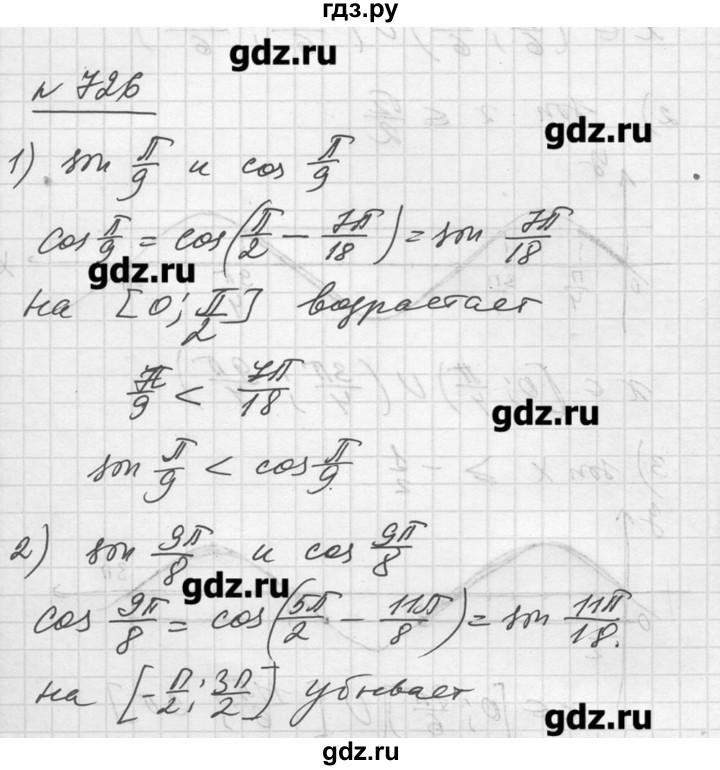 гдз.ру
gdz.ru
N 726
gdz.ru
1) sin π/9 и cos π/9
cos π/9 = cos(π/2 − 7π/18) = sin 7π/18
gdz.ru
на [0; π/2] возрастает
π/9 < 7π/18
gdz.ru
sin π/9 < cos π/9.
2) sin 9π/8 и cos 9π/8
gdz.ru
cos 9π/8 = cos(5π/2 − 11π/8) = sin 11π/18.
на [-π/2; 3π/2] убывает
gdz.ru
gdz.ru